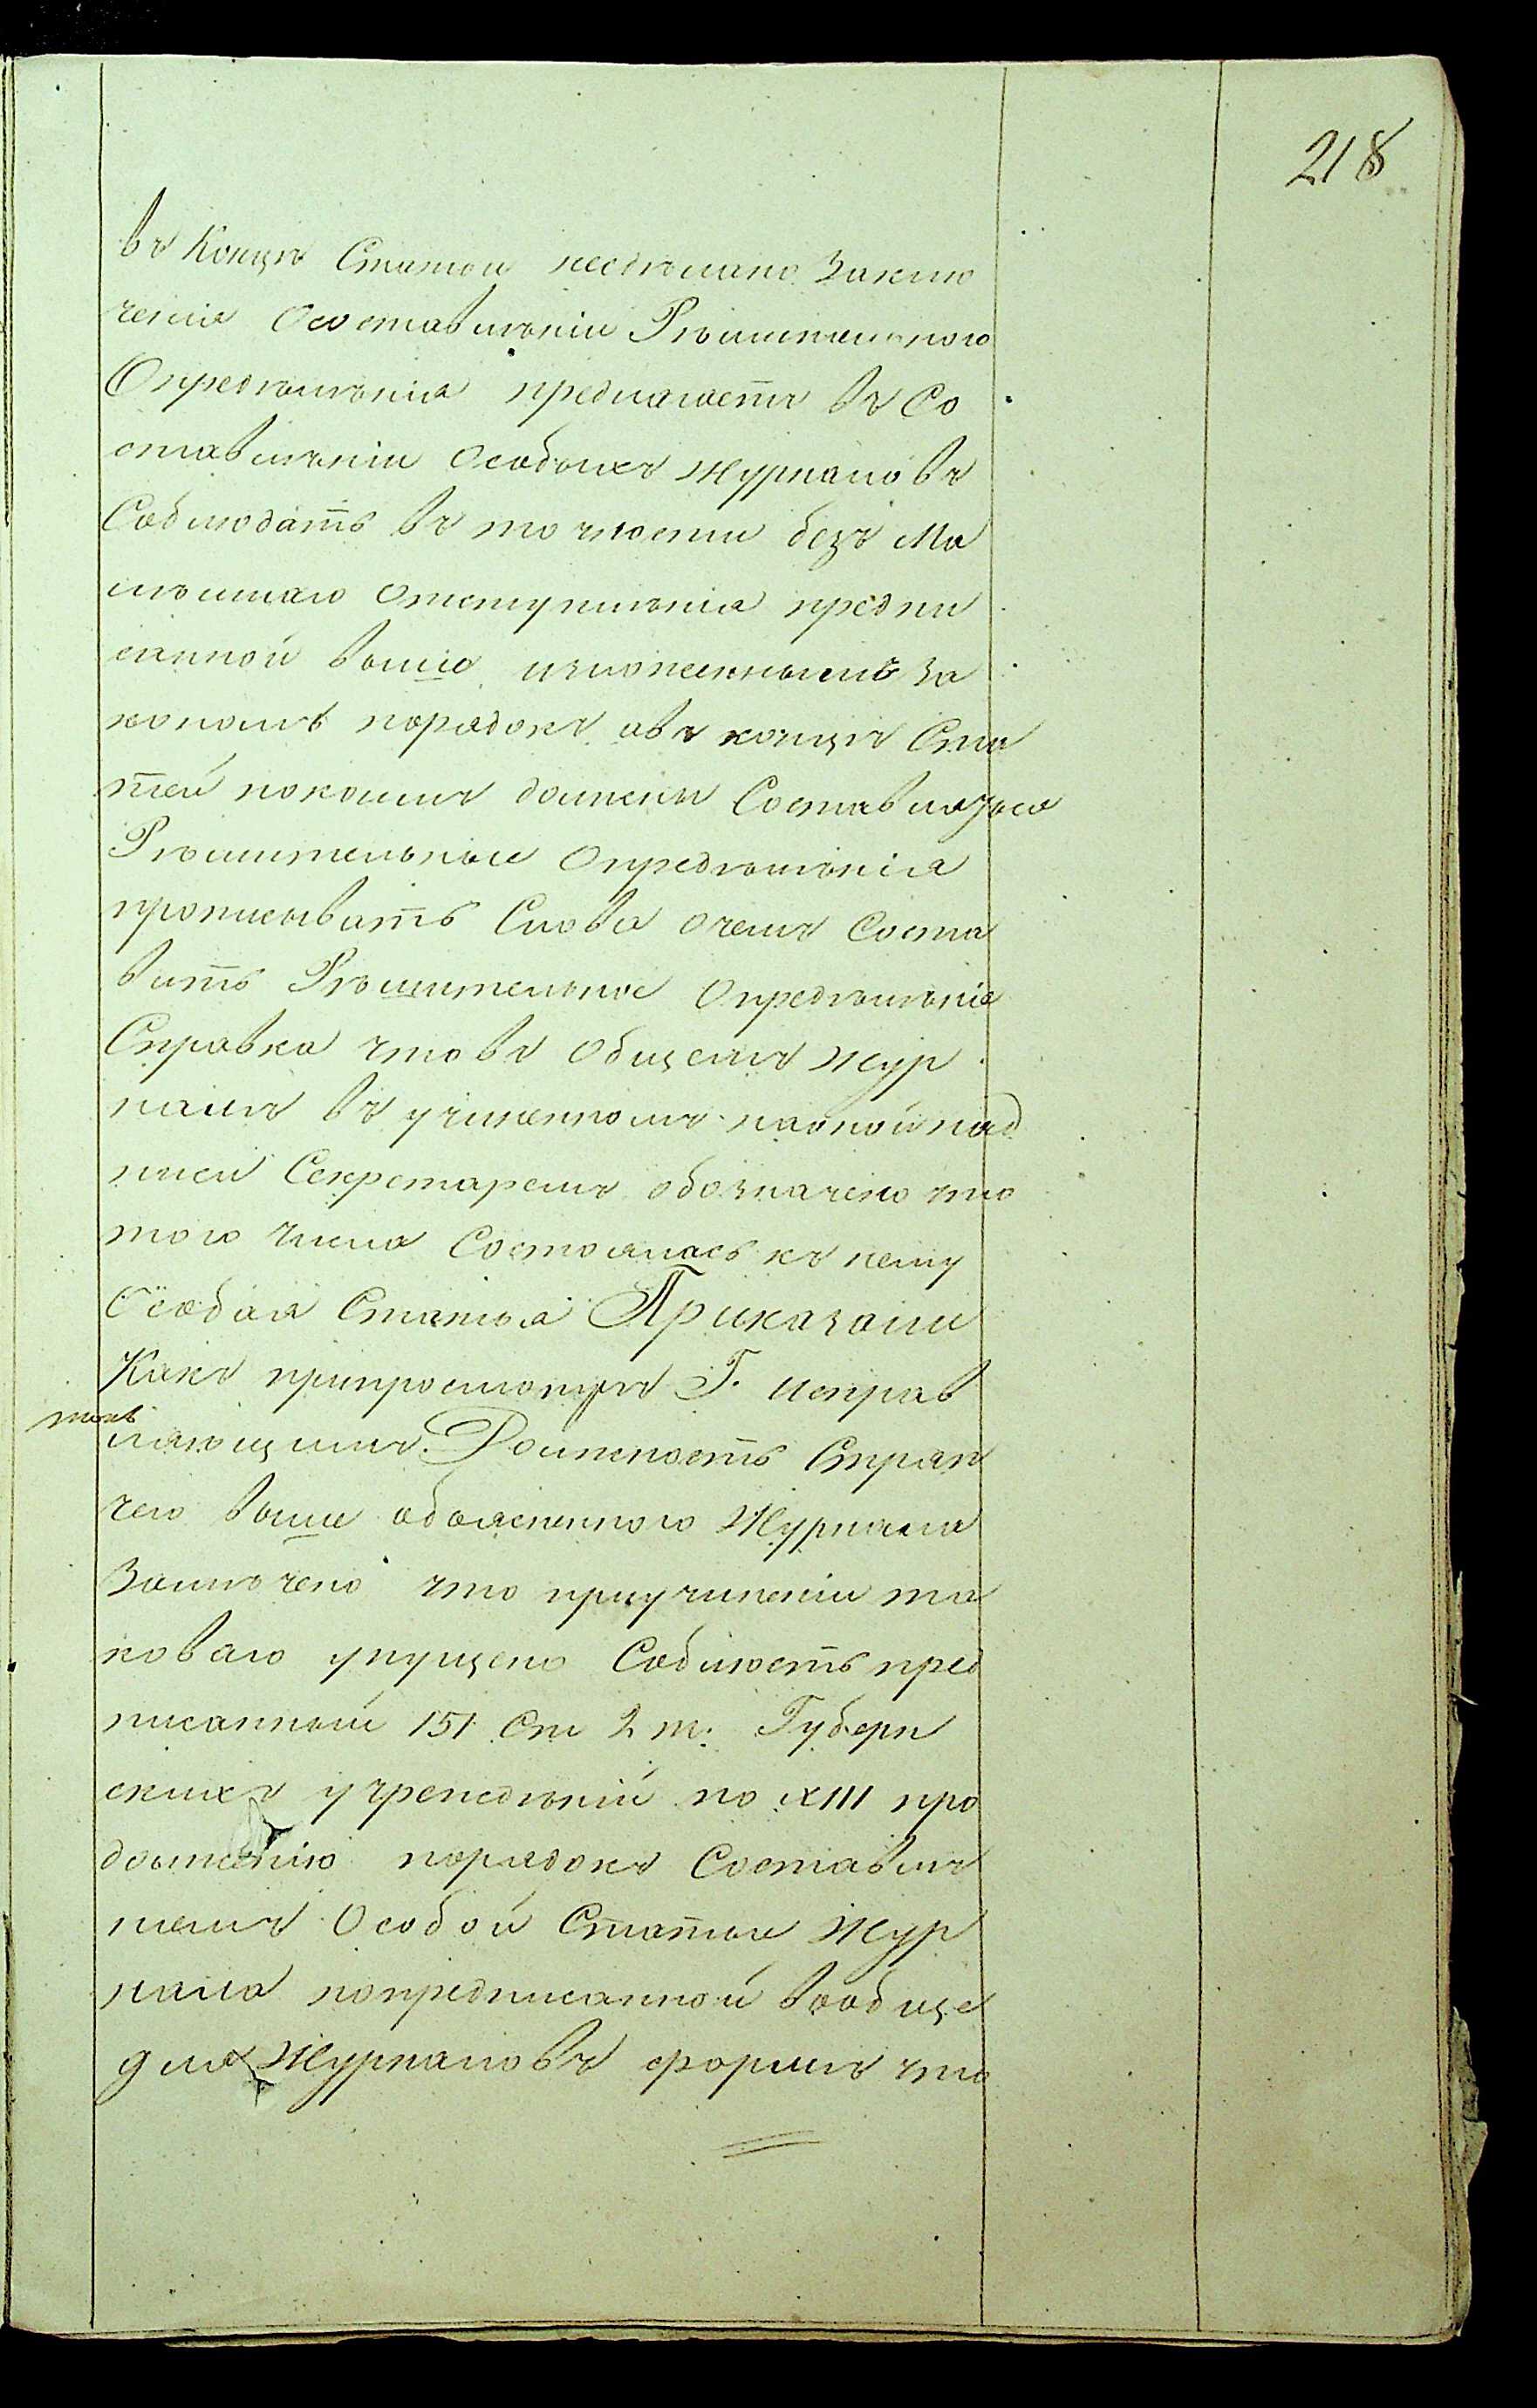 218
въ Концѣ Статьи несдѣлано Заклю
ченія Осоставлѣніи Рѣшительного
Опредѣлѣнія предлагаетъ въ Со
ставлѣніи Особыхъ журналовъ
Соблюдать въ точности безъ Ма
лѣшшаго Отступлѣнія предпи
санной выше изложеннымъ За
кономъ порядокъ авъ концѣ Ста
тей покоимъ должны Составлятся
Рѣшительные Опредѣлѣнія
прописывать Слова очемъ Соста
вить Рѣшительное Опредѣлѣніе
Справка чтовъ Общемъ жур
налѣ въ учиненномъ наоной над
писи Секретаремъ обозначено что
того числа Состоялась къ нему
Особая Статья Приказали
Какъ припросмотрѣ Г. Исправ
ляющимъ Должность Стряп
чего выше объясненного Журнала
Замѣчено что приучиненіи та
коваго упущено Соблюсть пред
писанный 151 Ст 2 т. Губерн
скихъ учрежденій по XIII про
долженію порядокъ Составле
ніемъ Особой Статьи Жур
нала попредписанной вообще
для Журналовъ формѣ что